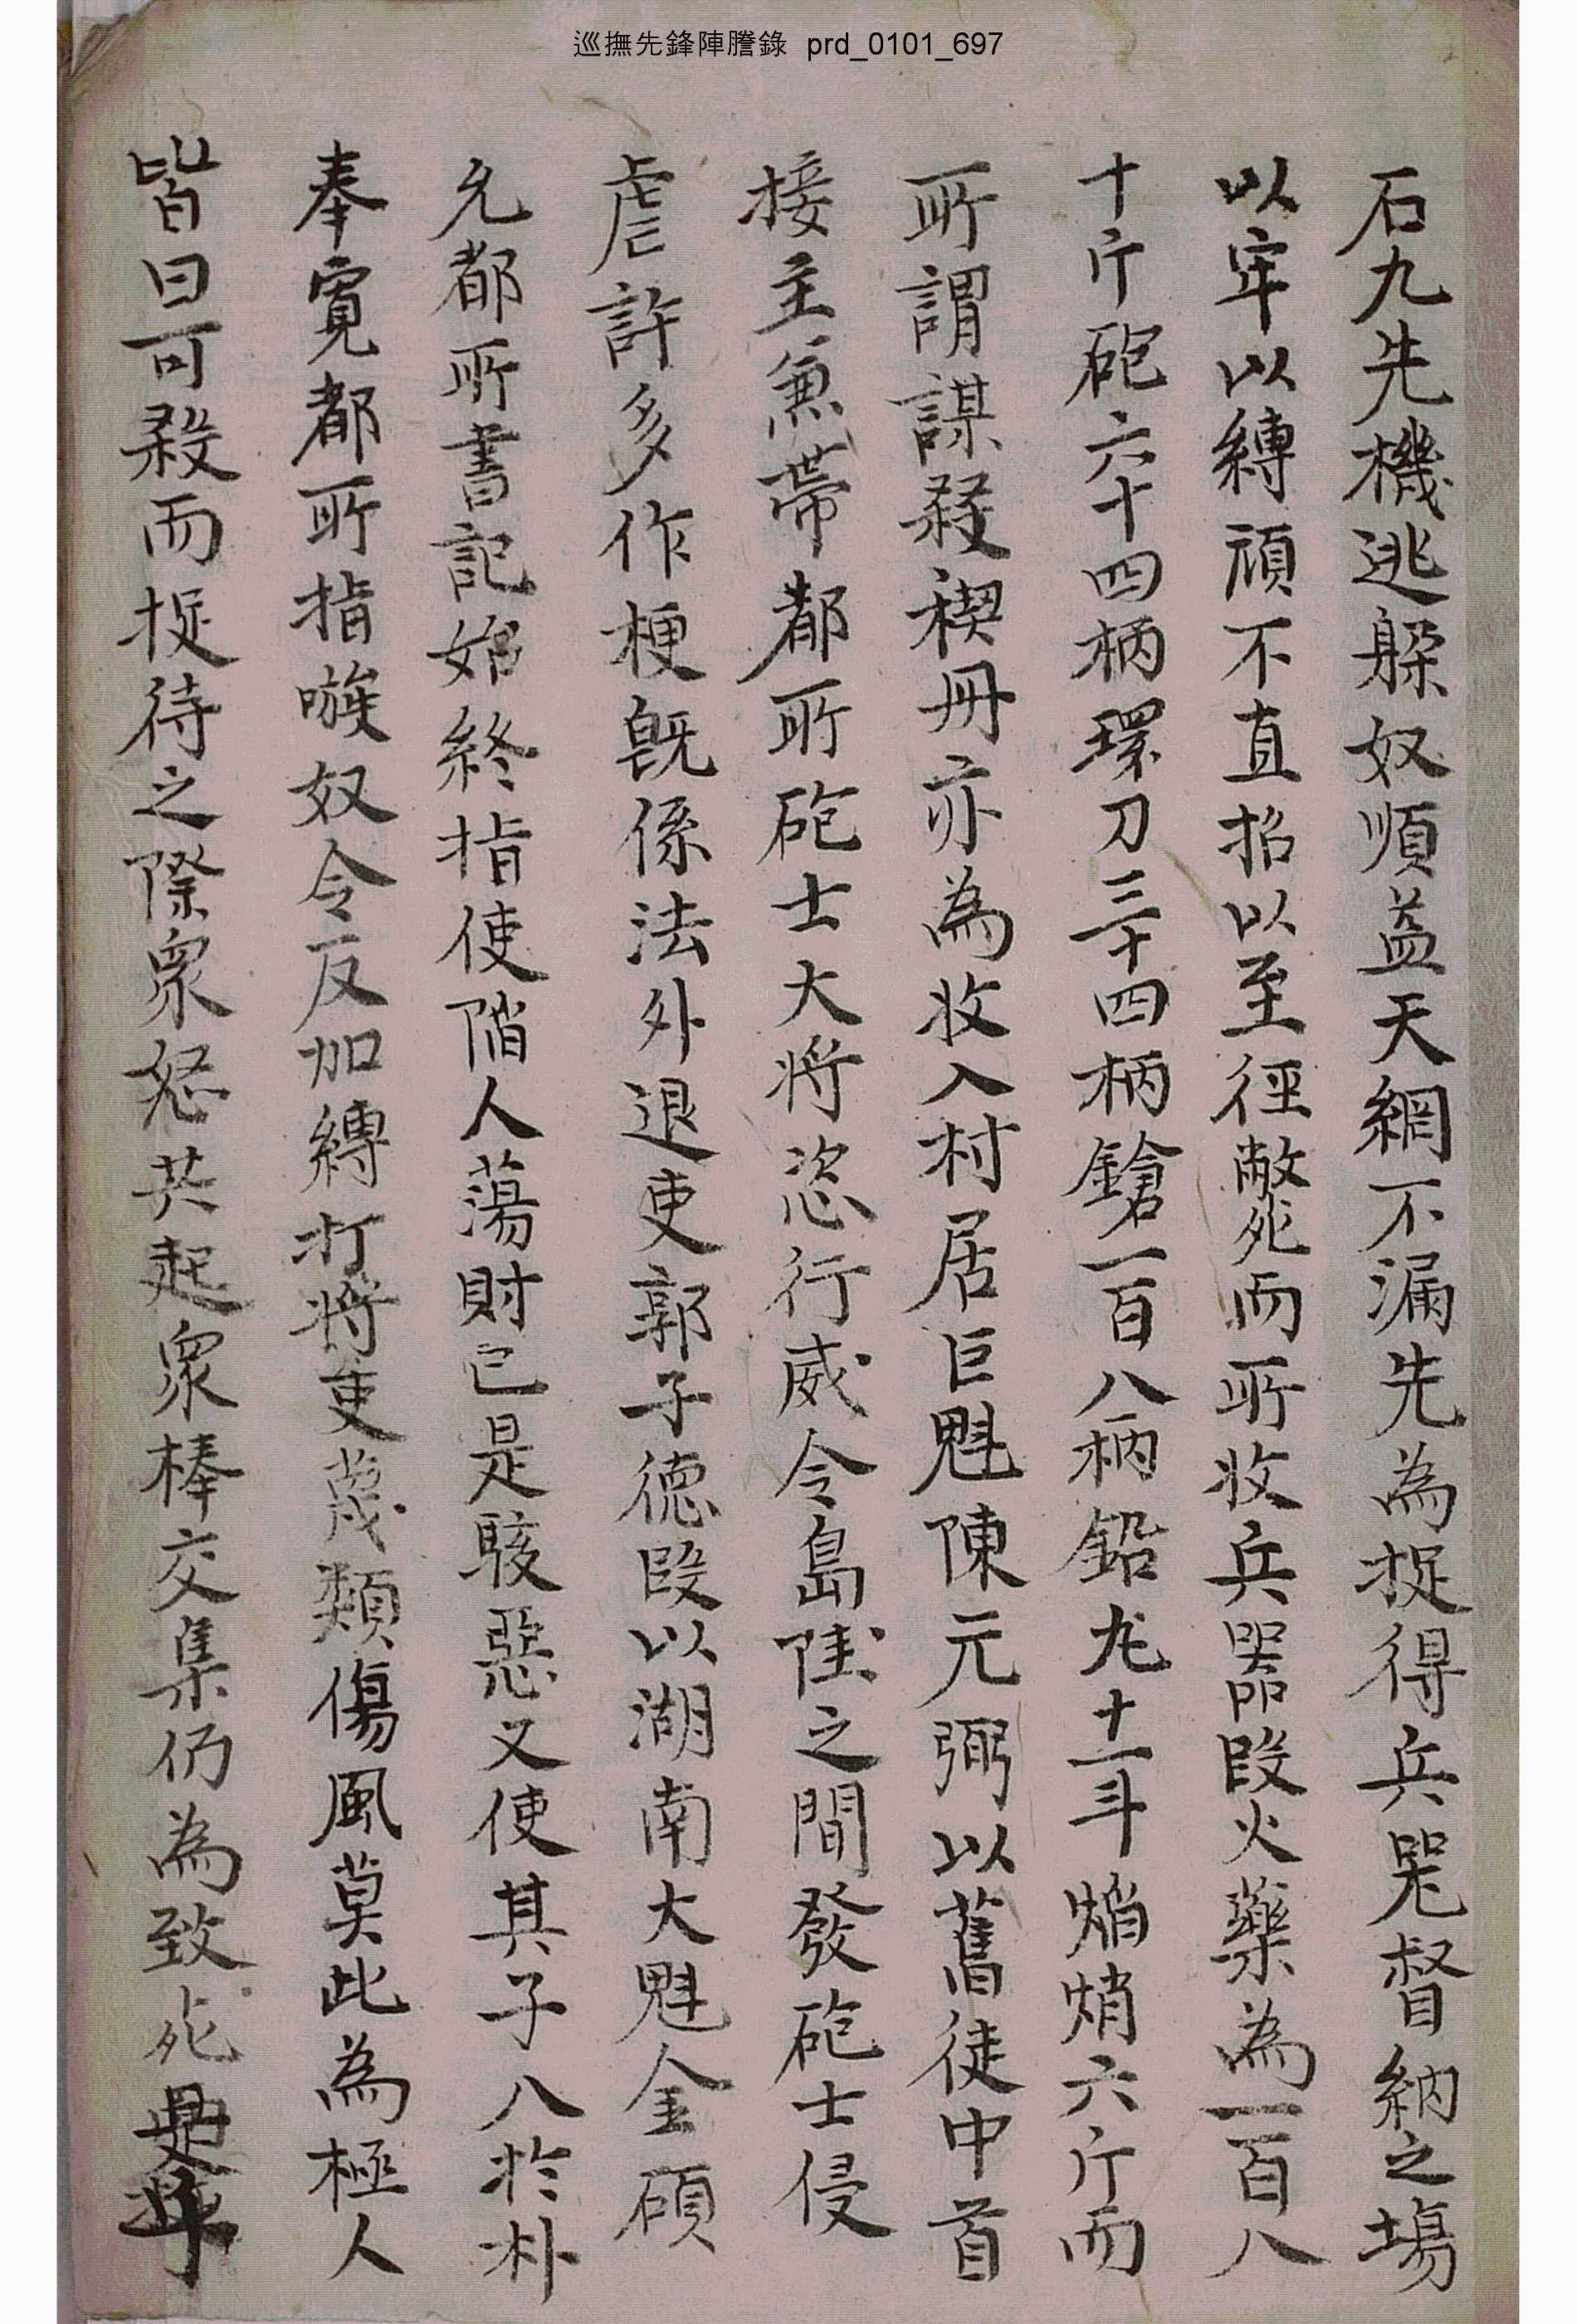 巡撫先鋒陣謄錄 prd_0101_697
石九先機逃躱奴順益天網不漏先爲捉得兵哭督納之場
以牢以縛頑不直招以至徑斃死而所收兵器段火藥爲一百八
十斤砲六十四柄環刀三十四柄鎗一百八柄鉛丸十一斗焇焇六斤而
所謂謀殺稧冊亦爲收入村居巨魁陳元弼以舊徒中首
接主兼帶都所砲士大將恣行威令島陸之間發砲士侵
虐許多作梗旣係法外退吏郭子德段以湖南大魁金碩
允都所書記始終指使陷人蕩財已是駭惡又使其子八於朴
奉寬都所指嗾奴令反加縛打將吏蔑類傷風莫此爲極人
皆曰可殺而捉待之際衆怒共起衆棒交集仍爲致死是